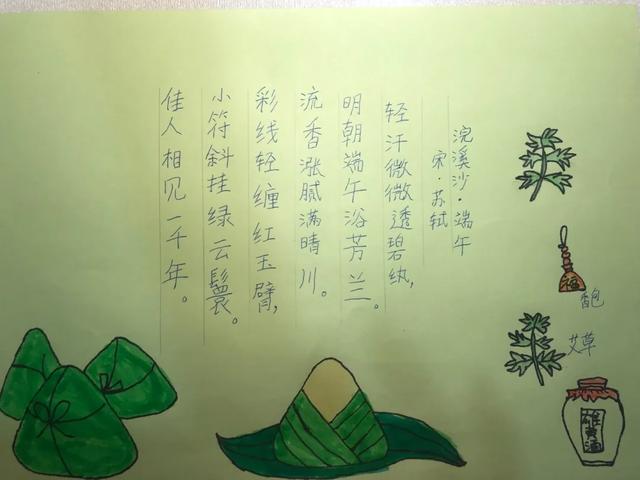 浣溪沙·端午
宋·苏轼
轻汗微微透碧纨,
明朝端午浴芳兰。
流香涨腻满晴川。
彩线轻缠红玉臂,
小符斜挂绿云鬟。
佳人相见一千年。
福
香包
艾草
雄黄酒